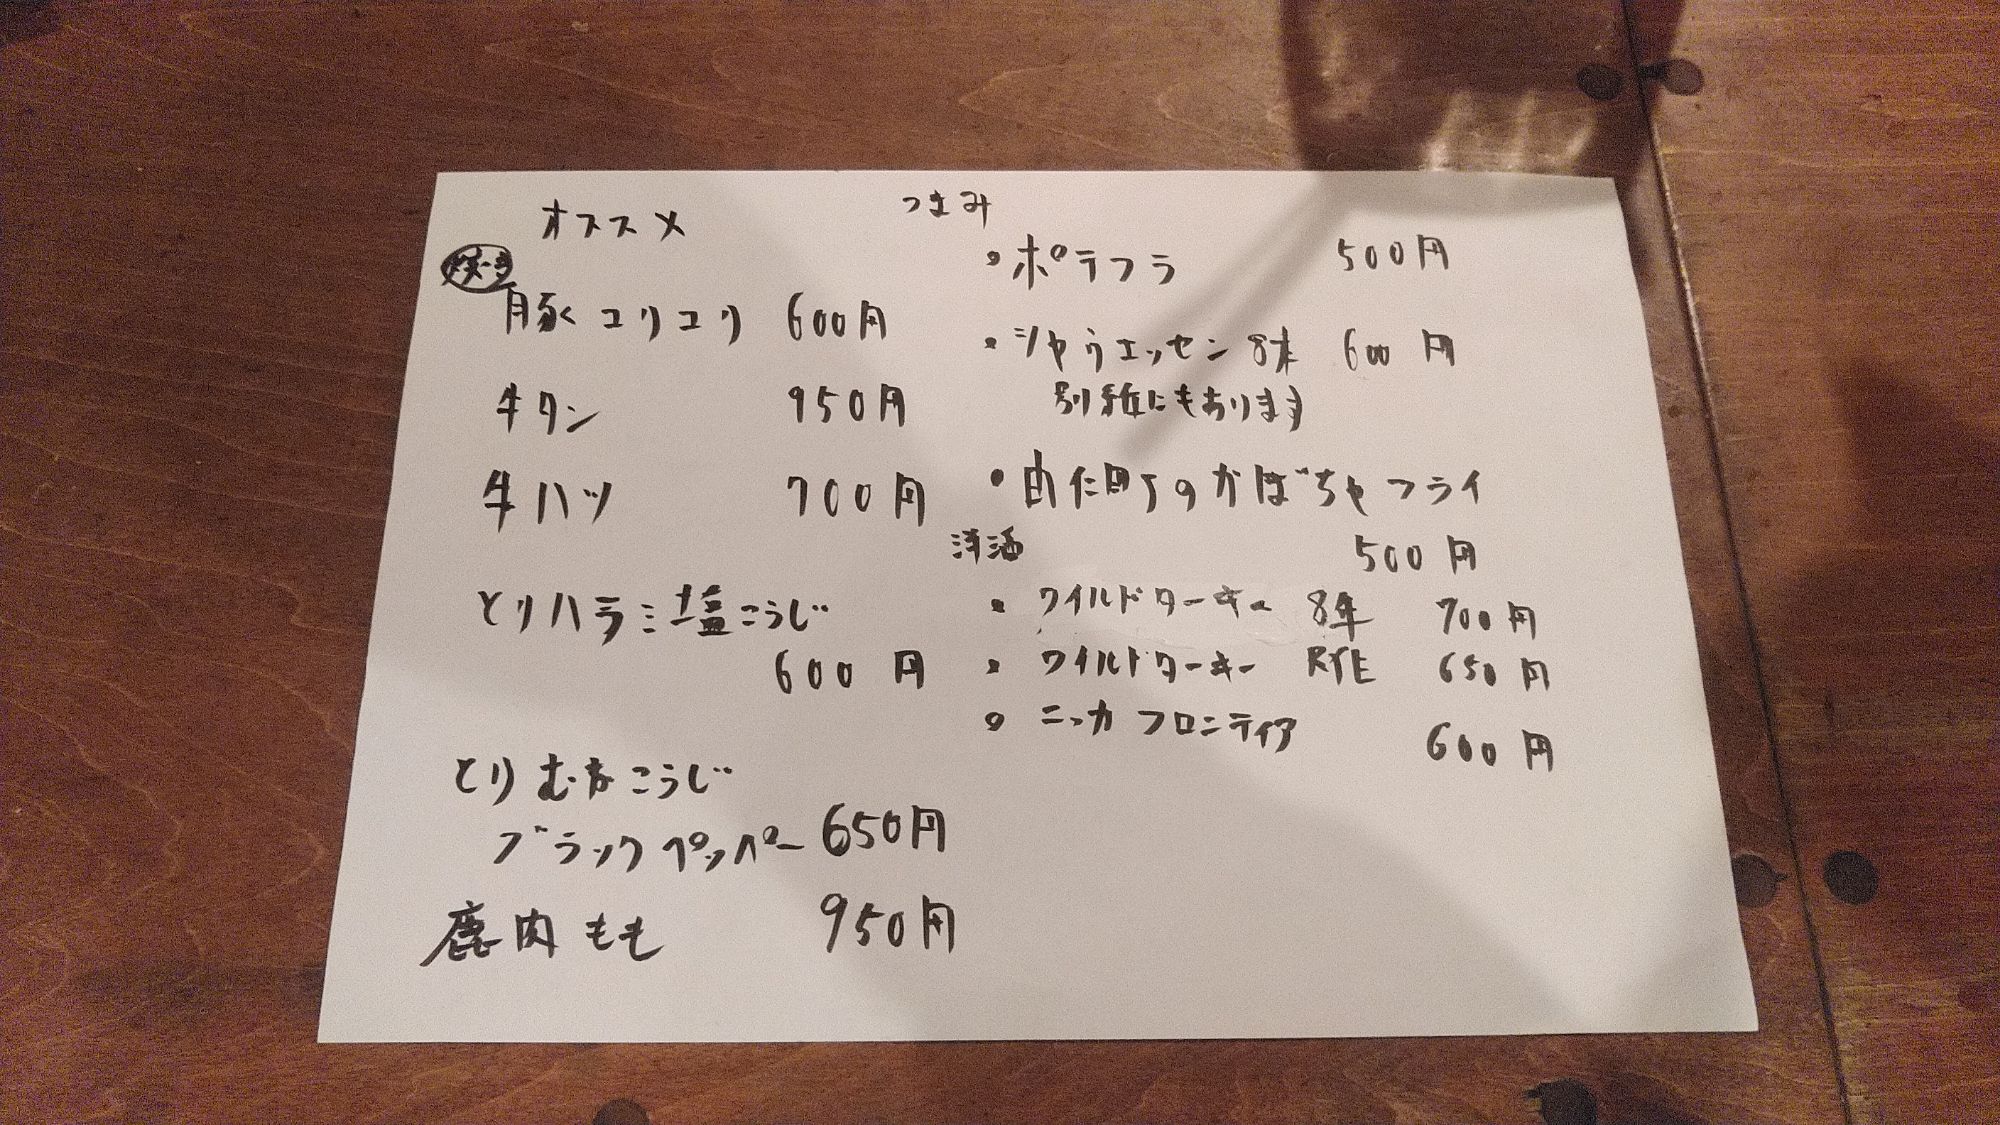 オススメ
焼き
豚コリコリ 600円
牛タン 950円
牛ハツ 700円
とりハラミ塩こうじ
600円
とりむねこうじ
ブラックペッパー 650円
鹿肉もも 950円
つまみ
・ポテフラ 500円
・シャウエッセン 8本 600円
別種にもあります
・由仁町のかぼちゃフライ
500円
洋酒
・ワイルドターキー 8年 700円
・ワイルドターキー RYE 650円
・ニッカ フロンティア 600円